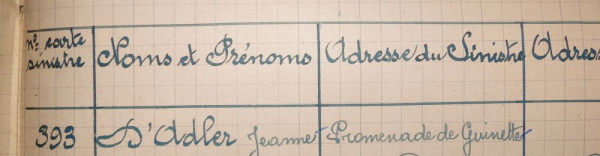 nº carte sinistre Noms et Prénoms Adresse du Sinistre Adres
393 D'Adler Jeanne Promenade de Guinette